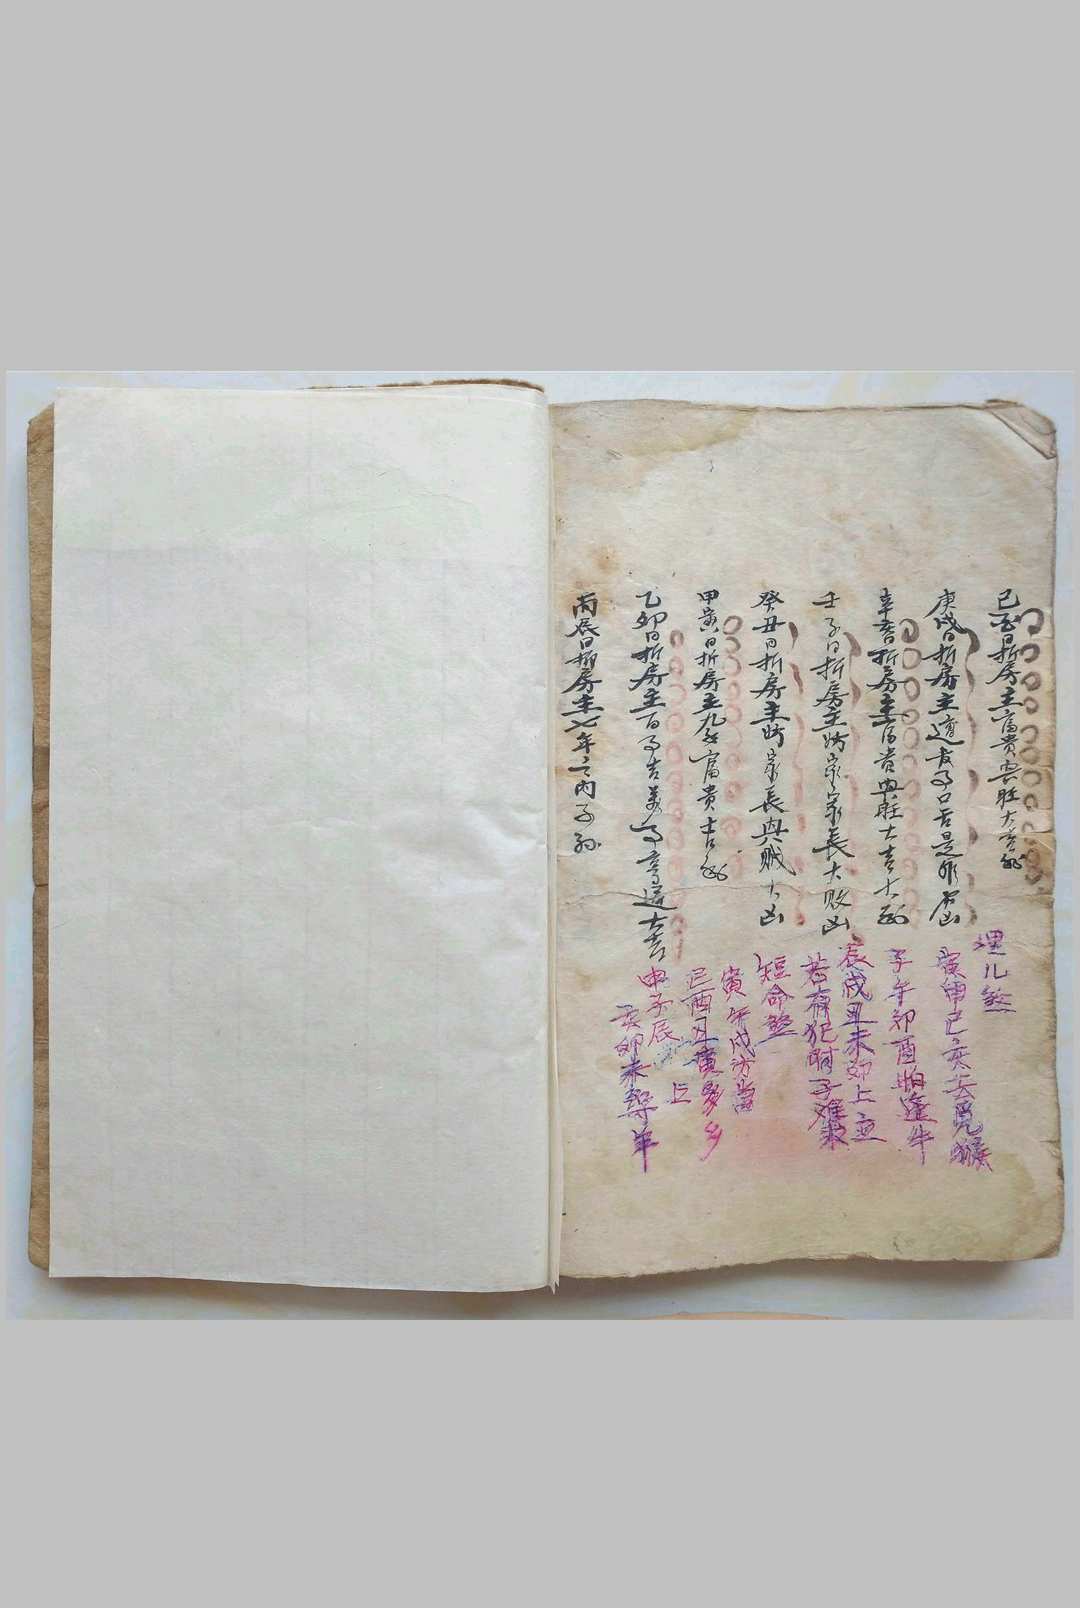 己酉日折房主富貴興旺大吉利
庚戌日折房主道友子口舌是非凶
辛亥日折房主富貴興旺大吉大利
壬子日折房主妨家家長大敗凶
癸丑日折房主妨家長與賊大凶
甲寅日折房主九年富貴吉利
乙卯日折房主百子吉萬子亨通大吉
丙辰日折房主七年之内子孫
埋儿煞
寅申巳亥兎猴
子午卯酉怕逢牛
辰戌丑未卯上
若有犯時子难
短命煞
寅午戌
巳酉丑寅多
申子辰 上
亥卯未 羊